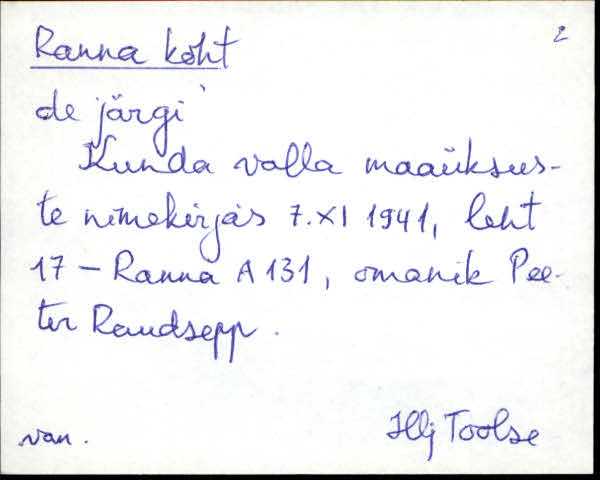 Ranna koht 2
de järgi
Kunda valla maaüksus-
te nimekirjas 7.XI 1941, leht
17 – Ranna A 131, omanik Pee-
ter Raudsepp.
van. Illj Toolse